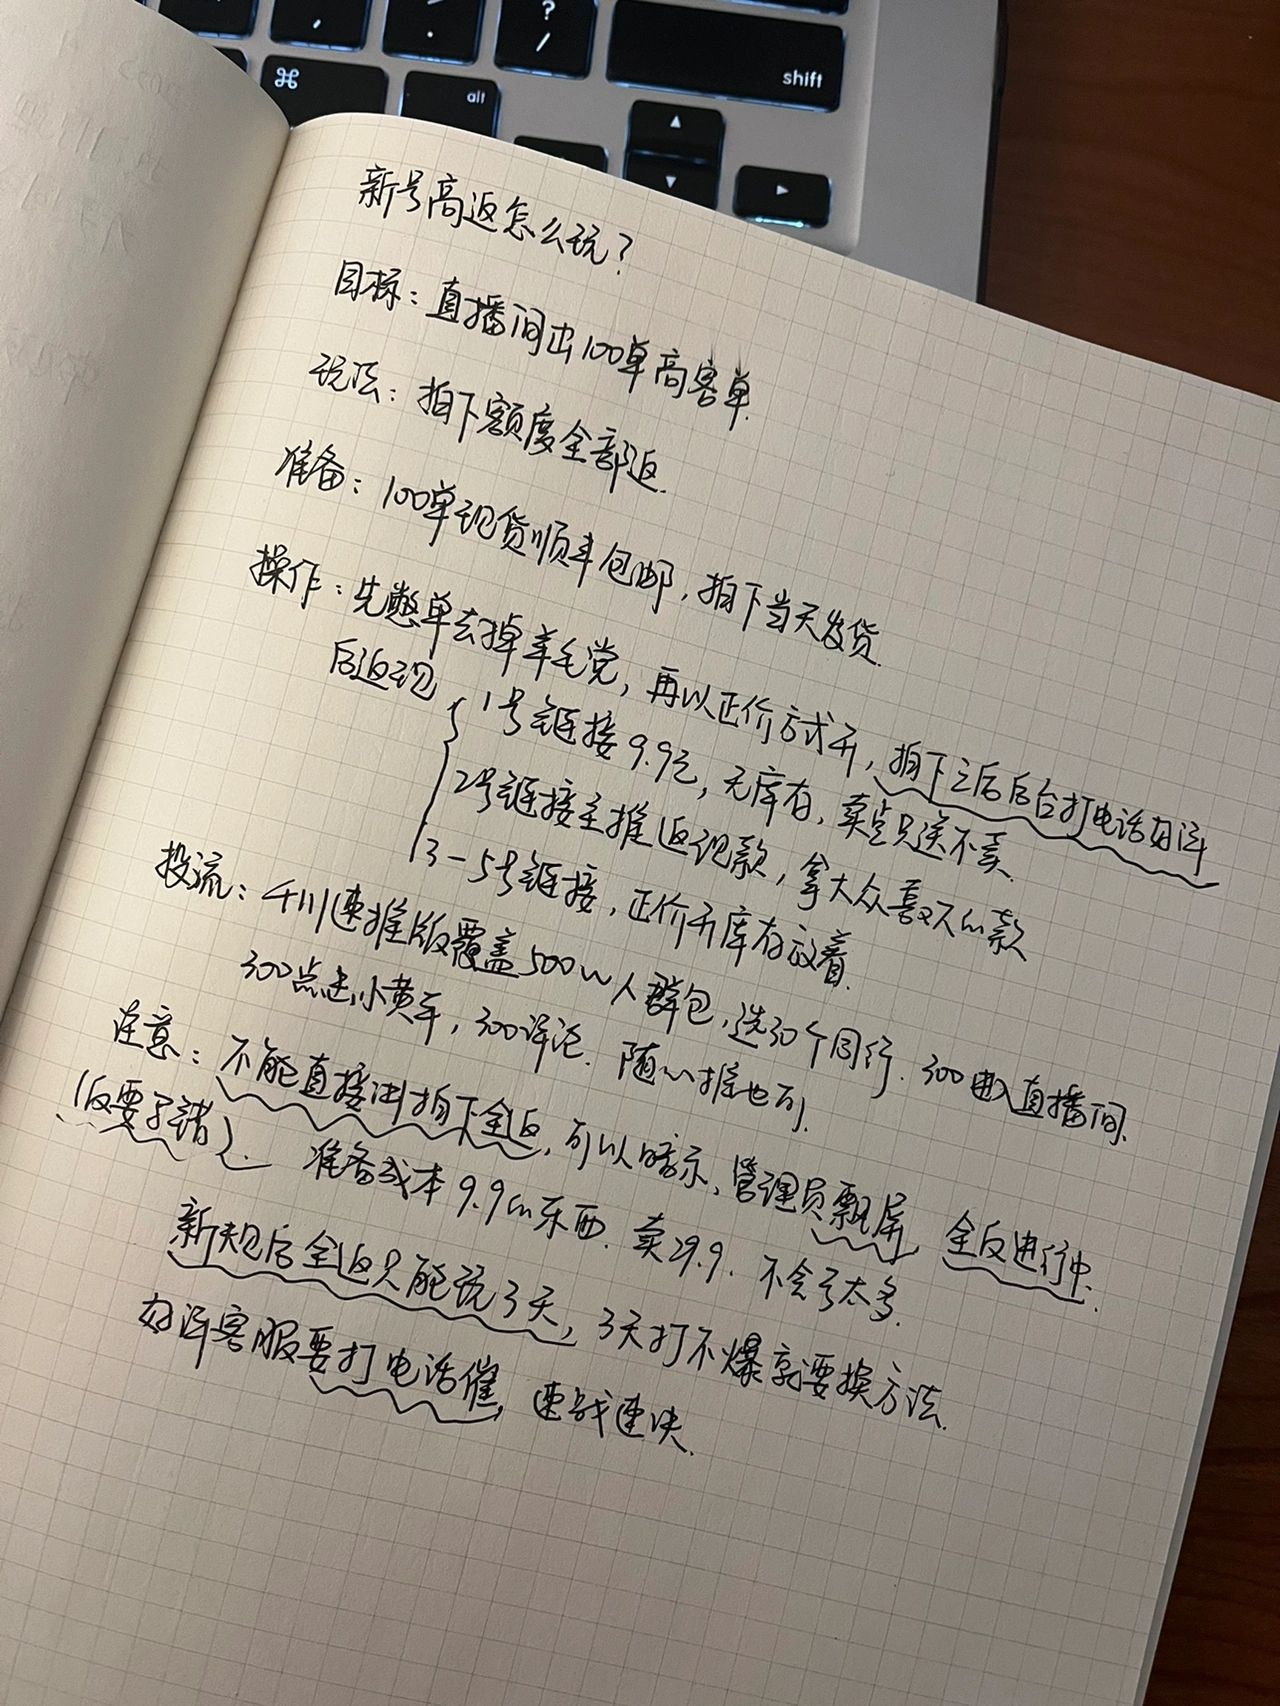 ?
/
⌘
alt
shift
新号高返怎么玩?
目标:直播间出100单高客单.
玩法:拍下额度全部返.
准备:100单现货顺丰包邮,拍下当天发货.
操作:先憋单去掉羊毛党,再以正价方式开,拍下之后后台打电话好评
后返现
1号链接9.9元,无库存,卖点只送不卖.
2号链接主推返现款,拿大众喜欢的款
3-5号链接,正价开库存放着.
投流:千川速推版覆盖500w人群包,选30个同行.300进入直播间.
300点击小黄车,300评论.随心推也可.
注意:不能直接讲拍下全返,可以暗示,管理员飘屏 全反进行中.
(反要写错). 准备成本9.9的东西.卖29.9.不会亏太多.
新规后全返只能玩3天,3天打不爆就要换方法.
好评客服要打电话催,速战速决.